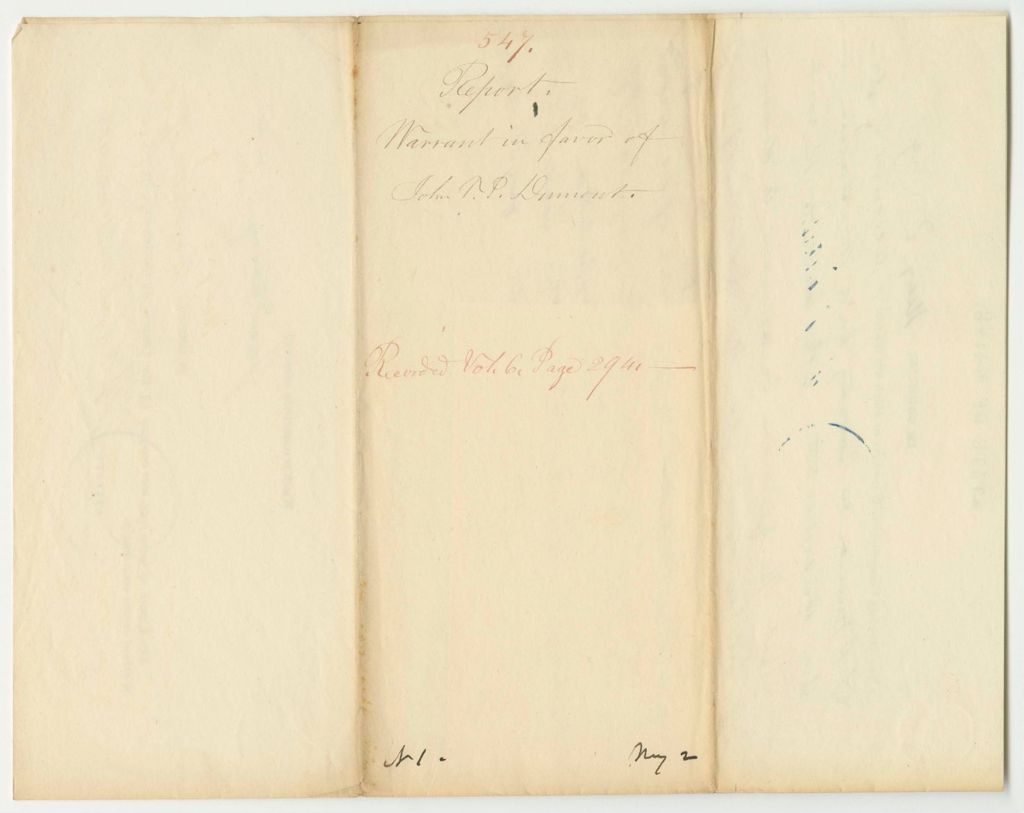 547.
Report.
Warrant in favor of
John T. P. Dumont.
Recorded Vol. 6. Page 294.
N 1.
May 2